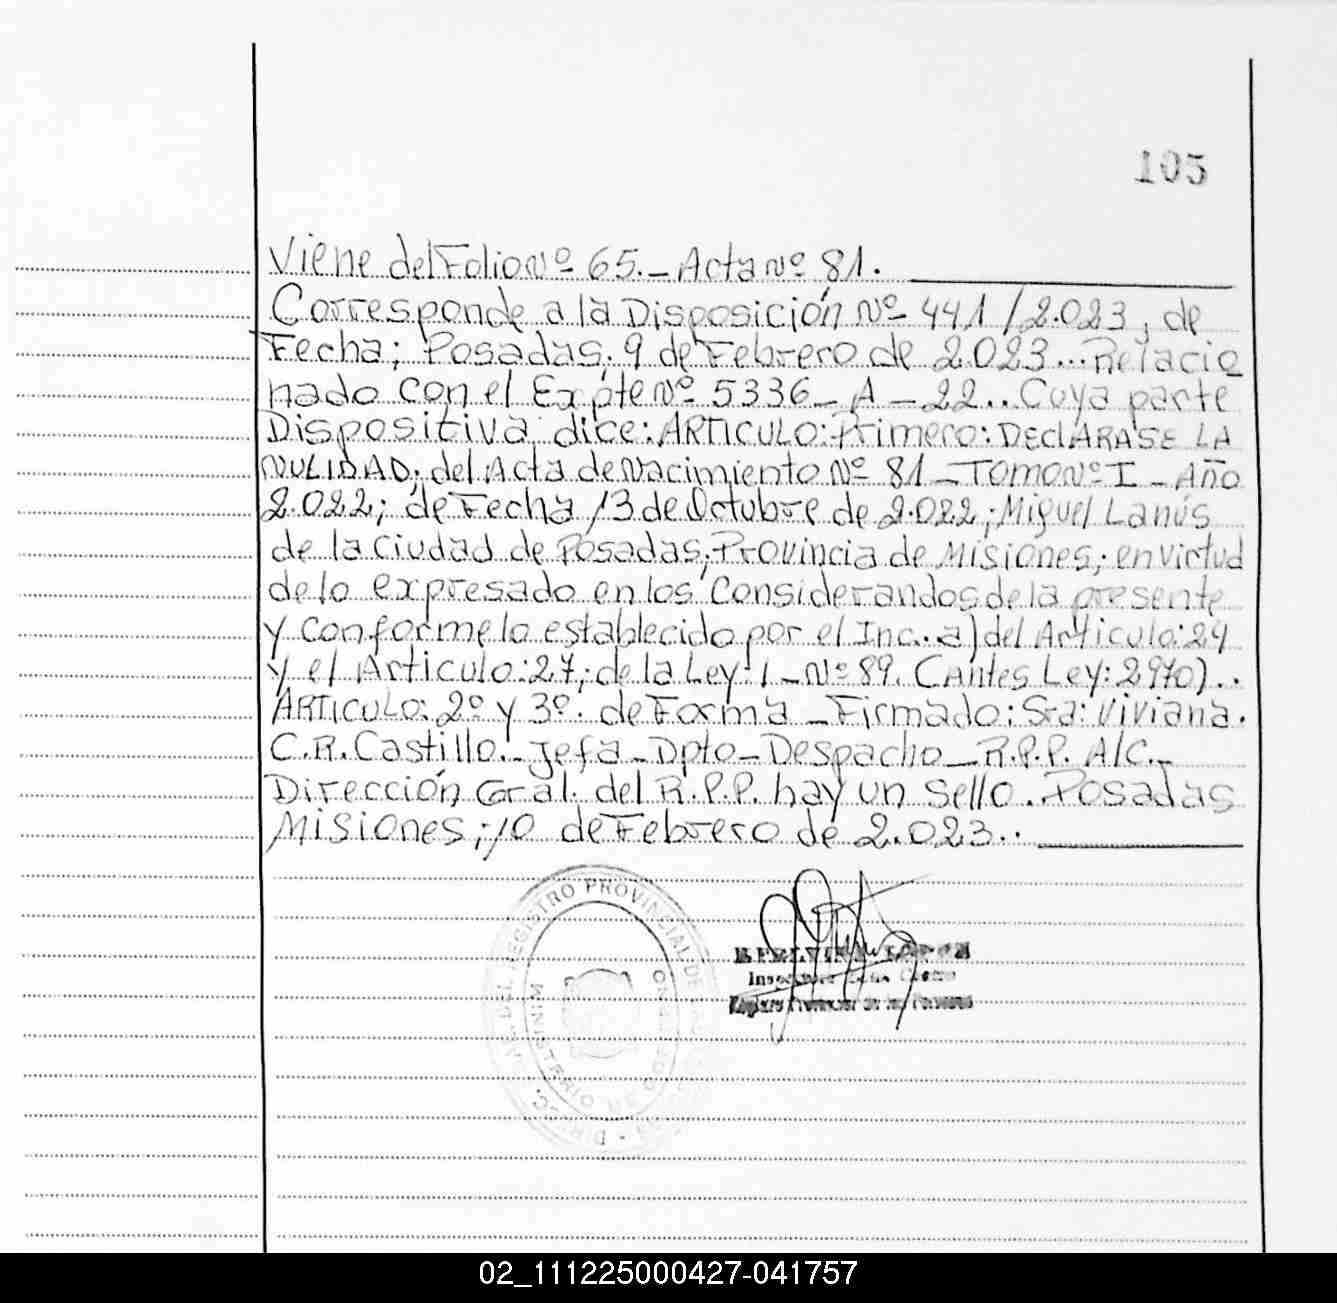 105
Viene del Folio Nº 65._ Acta Nº 81.
Corresponde a la Disposición Nº 441/2.023, de
Fecha; Posadas, 9 de Febrero de 2.023... Relacio
nado con el Expte Nº 5336_A_22.. Cuya parte
Dispositiva dice: ARTICULO: Primero: DEClARASE LA
NULIDAD; del Acta de Nacimiento Nº 81_Tomo Nº I_Año
2.022; de Fecha 13 de Octubre de 2.022; Miguel Lanús
de la Ciudad de Posadas; Provincia de Misiones; en virtud
de lo expresado en los Considerandos de la presente
y conforme lo establecido por el Inc.. a) del Artículo: 24
y el Artículo: 27; de la Ley: I_Nº 89. (Antes Ley: 2970)..
ARTICULO: 2º y 3º. de Forma_Firmado: Sra: Viviana.
C.R. Castillo._Jefa_Dpto_Despacho_R.P.P. A/C._
Dirección Gral. del R.P.P. hay un sello. Posadas
Misiones; 10 de Febrero de 2.023..
DIREC. DEL REGISTRO PROVINCIAL DE
MINISTERIO DE GOBIERNO
02_111225000427-041757